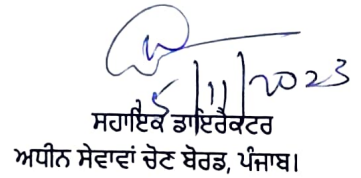 5/11/2023
ਸਹਾਇਕ ਡਾਇਰੈਕਟਰ
ਅਧੀਨ ਸੇਵਾਵਾਂ ਚੋਣ ਬੋਰਡ, ਪੰਜਾਬ।